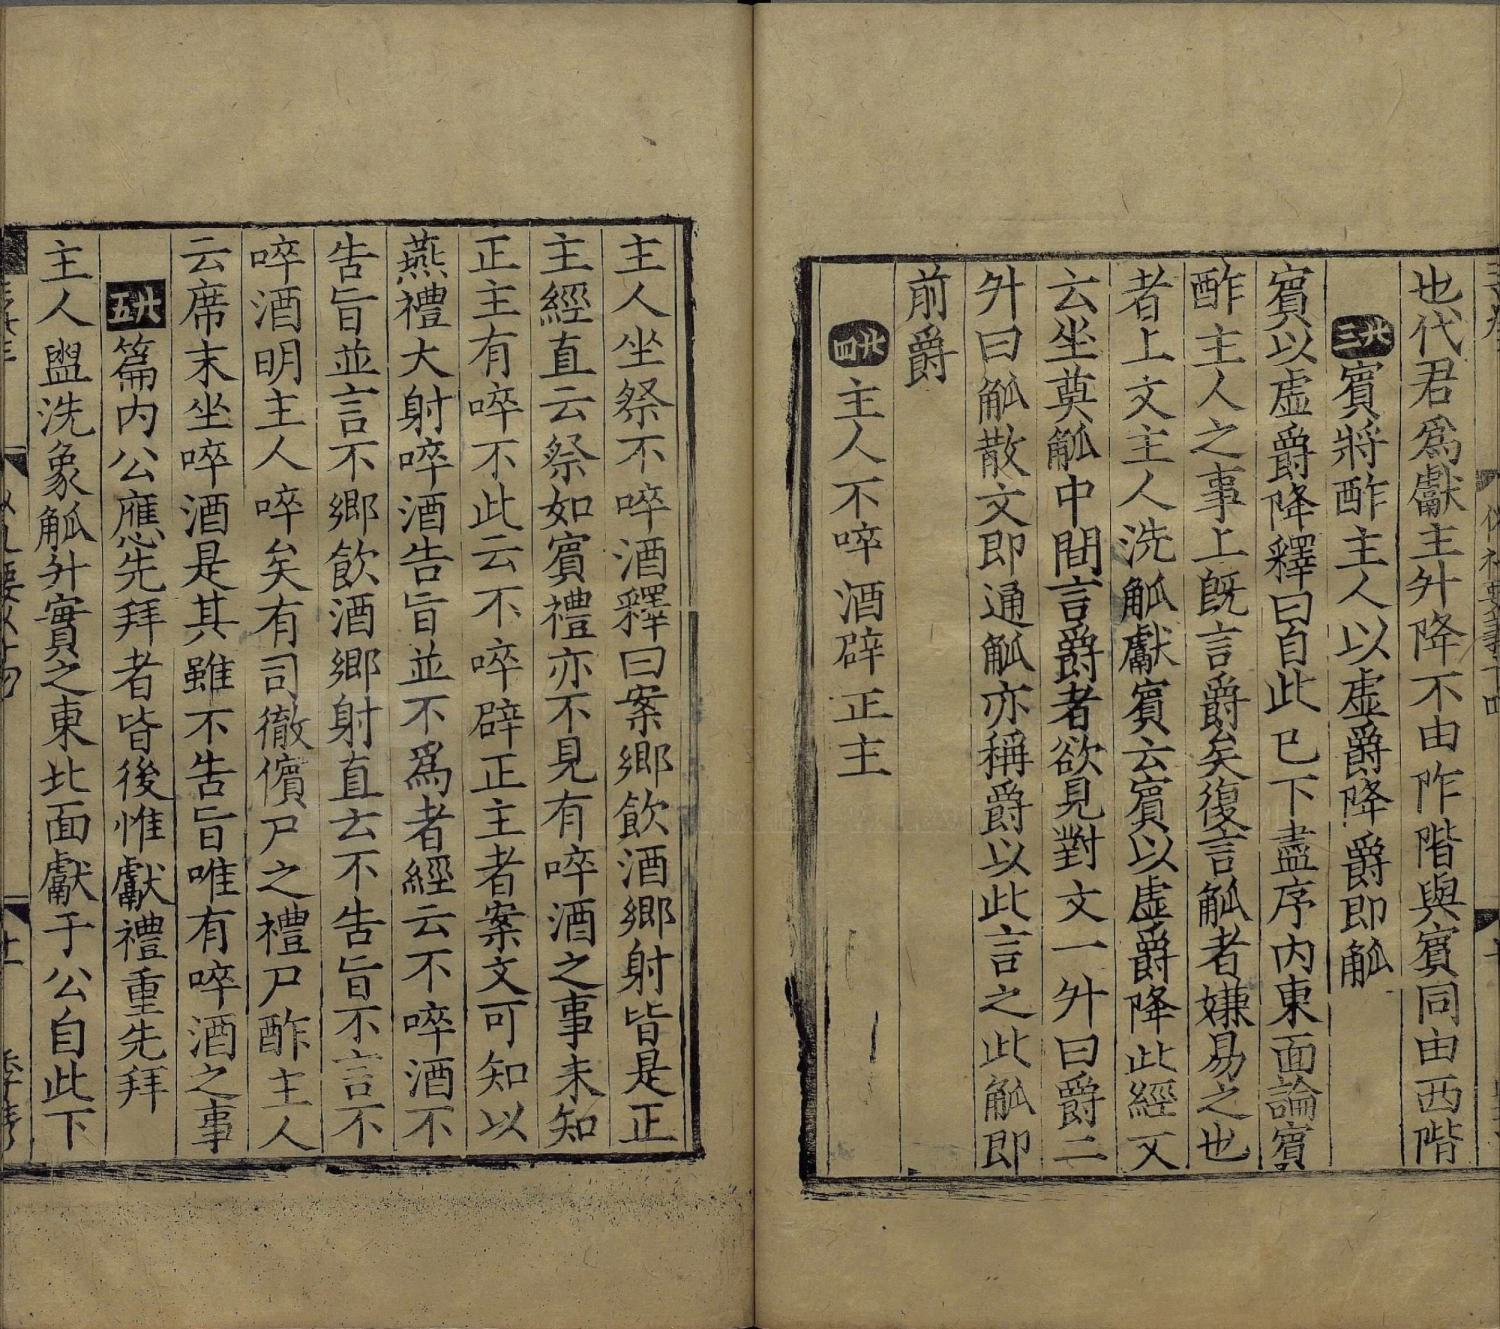 也代君爲獻主升降不由阼階與賓同由西階
廿三賓將酢主人以虛爵降爵即觚
賓以虛爵降釋曰自此已下盡序內東面論賓
酢主人之事上旣言爵矣復言觚者嫌易之也
者上文主人洗觚獻賓云賓以虛爵降此經又
云坐奠觚中間言爵者欲見對文一升曰爵二
升曰觚散文即通觚亦稱爵以此言之此觚即
前爵
廿四主人不啐酒辟正主
主人坐祭不啐酒釋曰案鄉飲酒鄉射皆是正
主經直云祭如賓禮亦不見有啐酒之事未知
正主有啐不此云不啐辟正主者案文可知以
燕禮大射啐酒告旨並不爲者經云不啐酒不
告旨並言不鄉飲酒鄉射直云不告旨不言不
啐酒明主人啐矣有司徹儐尸之禮尸酢主人
云席末坐啐酒是其雖不告旨唯有啐酒之事
廿五篇內公應先拜者皆後惟獻禮重先拜
主人盥洗象觚升實之東北面獻于公自此下